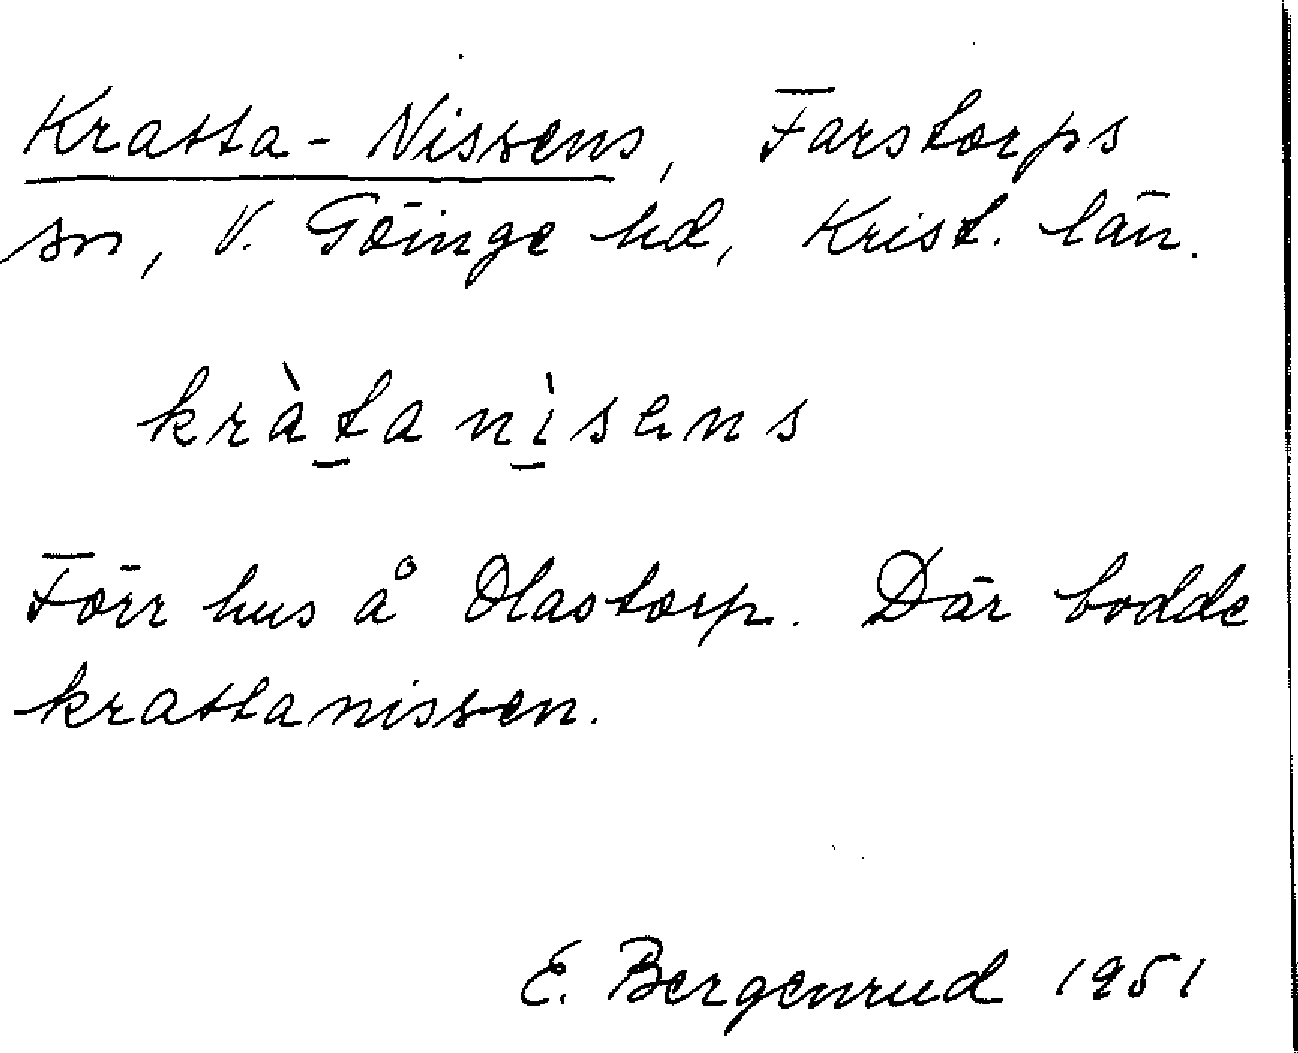 Kratta-Nissens, Farstorps
sn, V. Göinge hd, Krist. län.
kràt̠a nì̠sens
Förr hus å Olastorp. Där bodde
krattanissen.
E. Bergenrud 1951